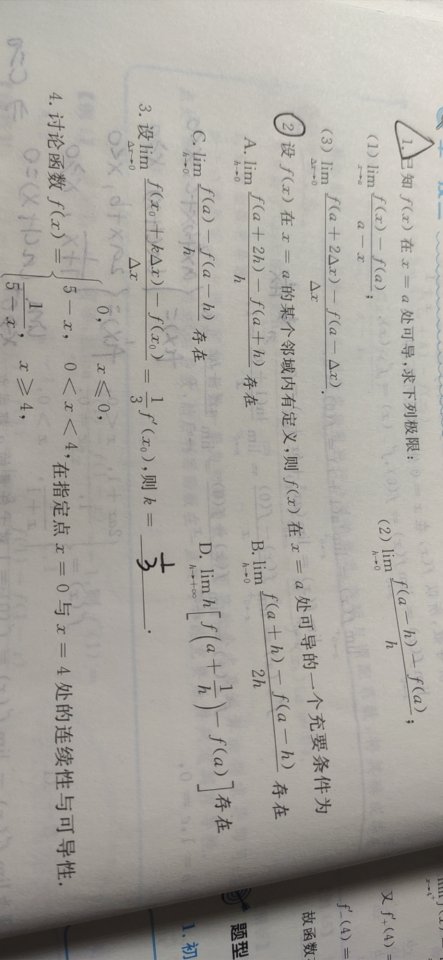 1. 已知 f(x) 在 x = a 处可导,求下列极限:
(1) lim_{x→a} \frac{f(x) - f(a)}{a - x}; (2) lim_{h→0} \frac{f(a - h) - f(a)}{h};
(3) lim_{Δx→0} \frac{f(a + 2Δx) - f(a - Δx)}{Δx}.
2. 设 f(x) 在 x = a 的某个邻域内有定义,则 f(x) 在 x = a 处可导的一个充要条件为
A. lim_{h→0} \frac{f(a + 2h) - f(a + h)}{h} 存在 B. lim_{h→0} \frac{f(a + h) - f(a - h)}{2h} 存在
C. lim_{h→0} \frac{f(a) - f(a - h)}{h} 存在 D. lim_{h→+∞} h[f(a + \frac{1}{h}) - f(a)] 存在
3. 设 lim_{Δx→0} \frac{f(x₀ + kΔx) - f(x₀)}{Δx} = \frac{1}{3} f′(x₀),则 k = \frac{1}{3}.
4. 讨论函数 f(x) = { 0, x ≤ 0,
5 - x, 0 < x < 4, 在指定点 x = 0 与 x = 4 处的连续性与可导性.
\frac{1}{5 - x}, x ≥ 4,
又 f′₊(4) =
f′₋(4) =
故函数
题型
1. 初